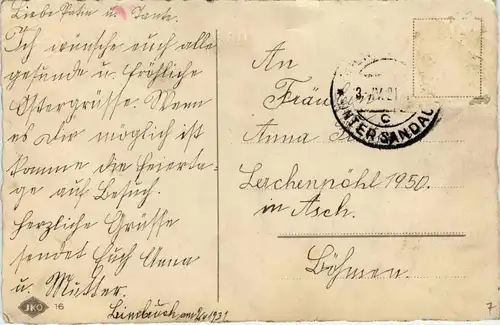 Liebe Patin u. Tante.
Ich wünsche euch alle
gesunde u. fröhliche
Ostergrüsse. Wenn
es Dir möglich ist
komme die Feierta-
ge auf Besuch.
Herzliche Grüsse
sendet Euch Anna
u. Mutter.
1931
JKO 16
An
Fräu
Anna
Lerchenpöhl 1950.
in Asch.
Böhmen.
3.IV.31
c
UNTERSANDAU
7